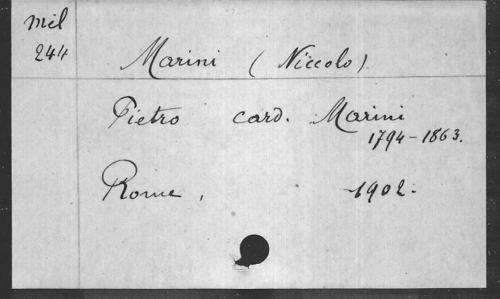 Mil
244
Marini (Niccolo)
Pietro card. Marini
1794-1863.
Rome, 1902.